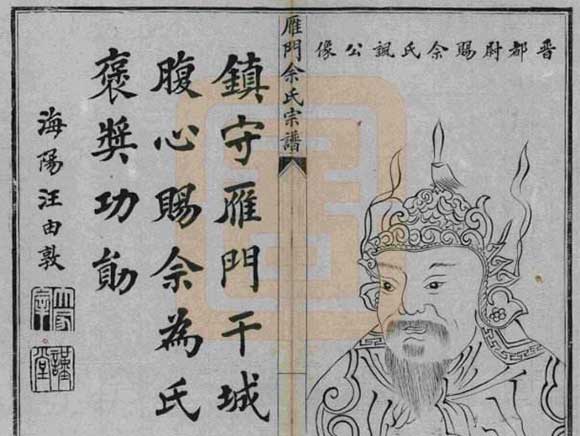 晉都尉賜余氏諷公像
雁門余氏宗譜
鎮守雁門干城
腹心賜余為氏
褒獎功勛
海陽汪由敦
謹堂